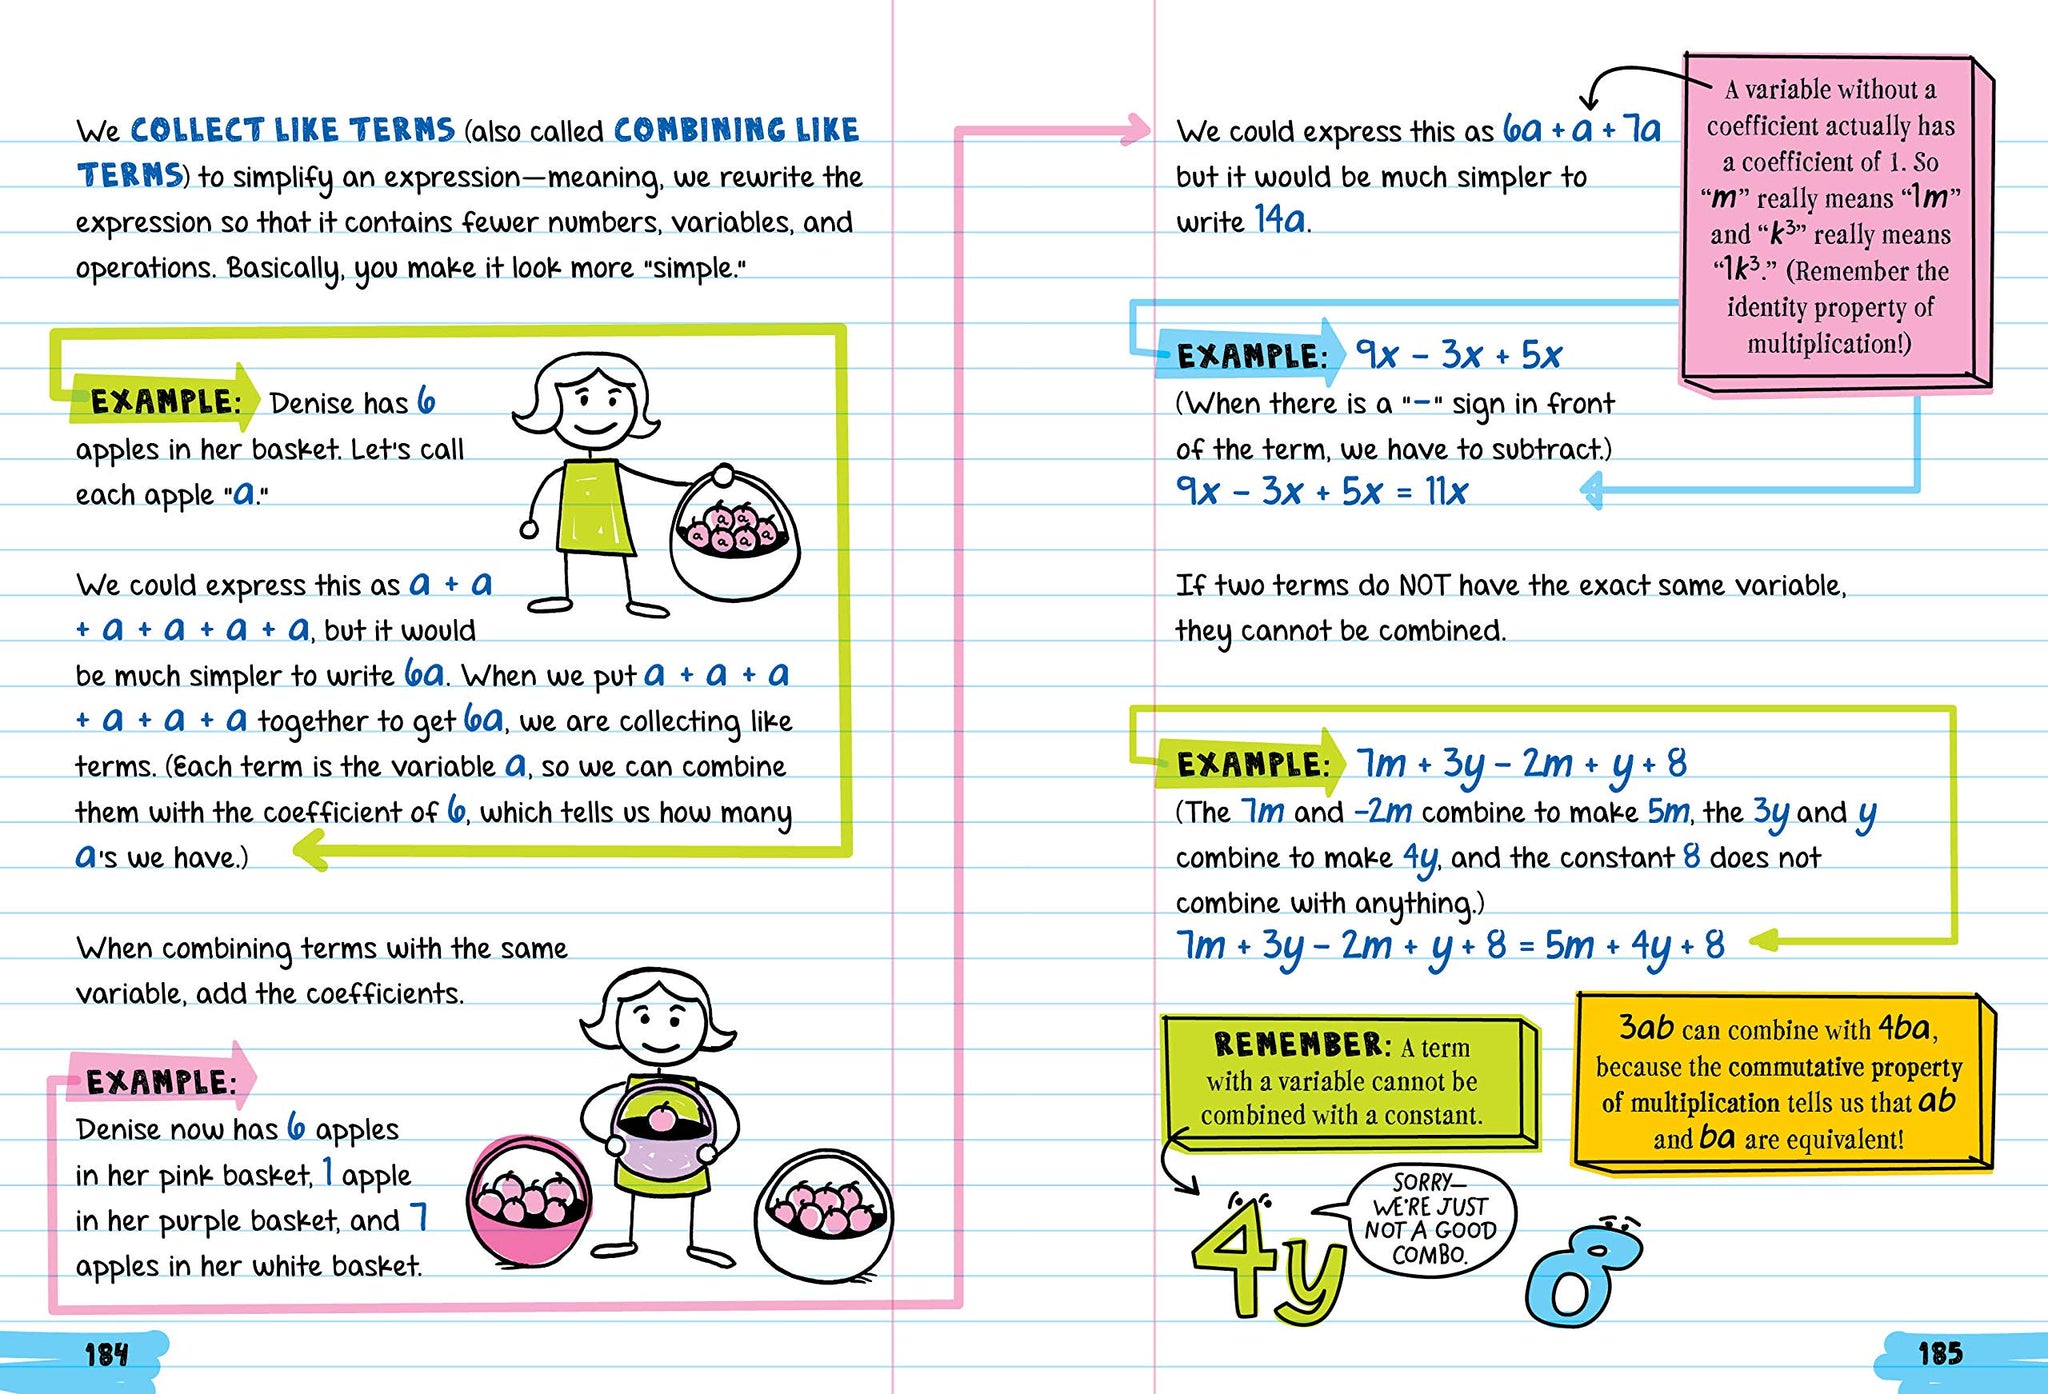 We COLLECT LIKE TERMS (also called COMBINING LIKE
TERMS) to simplify an expression—meaning, we rewrite the
expression so that it contains fewer numbers, variables, and
operations. Basically, you make it look more "simple."
EXAMPLE: Denise has 6
apples in her basket. Let's call
each apple "a."
a a
a a a a
We could express this as a + a
+ a + a + a + a, but it would
be much simpler to write 6a. When we put a + a + a
+ a + a + a together to get 6a, we are collecting like
terms. (Each term is the variable a, so we can combine
them with the coefficient of 6, which tells us how many
a's we have.)
When combining terms with the same
variable, add the coefficients.
EXAMPLE:
Denise now has 6 apples
in her pink basket, 1 apple
in her purple basket, and 7
apples in her white basket.
184
We could express this as 6a + a + 7a
but it would be much simpler to
write 14a.
A variable without a
coefficient actually has
a coefficient of 1. So
“m” really means “1m”
and “k³” really means
“1k³.” (Remember the
identity property of
multiplication!)
EXAMPLE: 9x – 3x + 5x
(When there is a "–" sign in front
of the term, we have to subtract.)
9x – 3x + 5x = 11x
If two terms do NOT have the exact same variable,
they cannot be combined.
EXAMPLE: 7m + 3y – 2m + y + 8
(The 7m and -2m combine to make 5m, the 3y and y
combine to make 4y, and the constant 8 does not
combine with anything.)
7m + 3y – 2m + y + 8 = 5m + 4y + 8
REMEMBER: A term
with a variable cannot be
combined with a constant.
3ab can combine with 4ba,
because the commutative property
of multiplication tells us that ab
and ba are equivalent!
4y
SORRY—
WE'RE JUST
NOT A GOOD
COMBO.
8
185